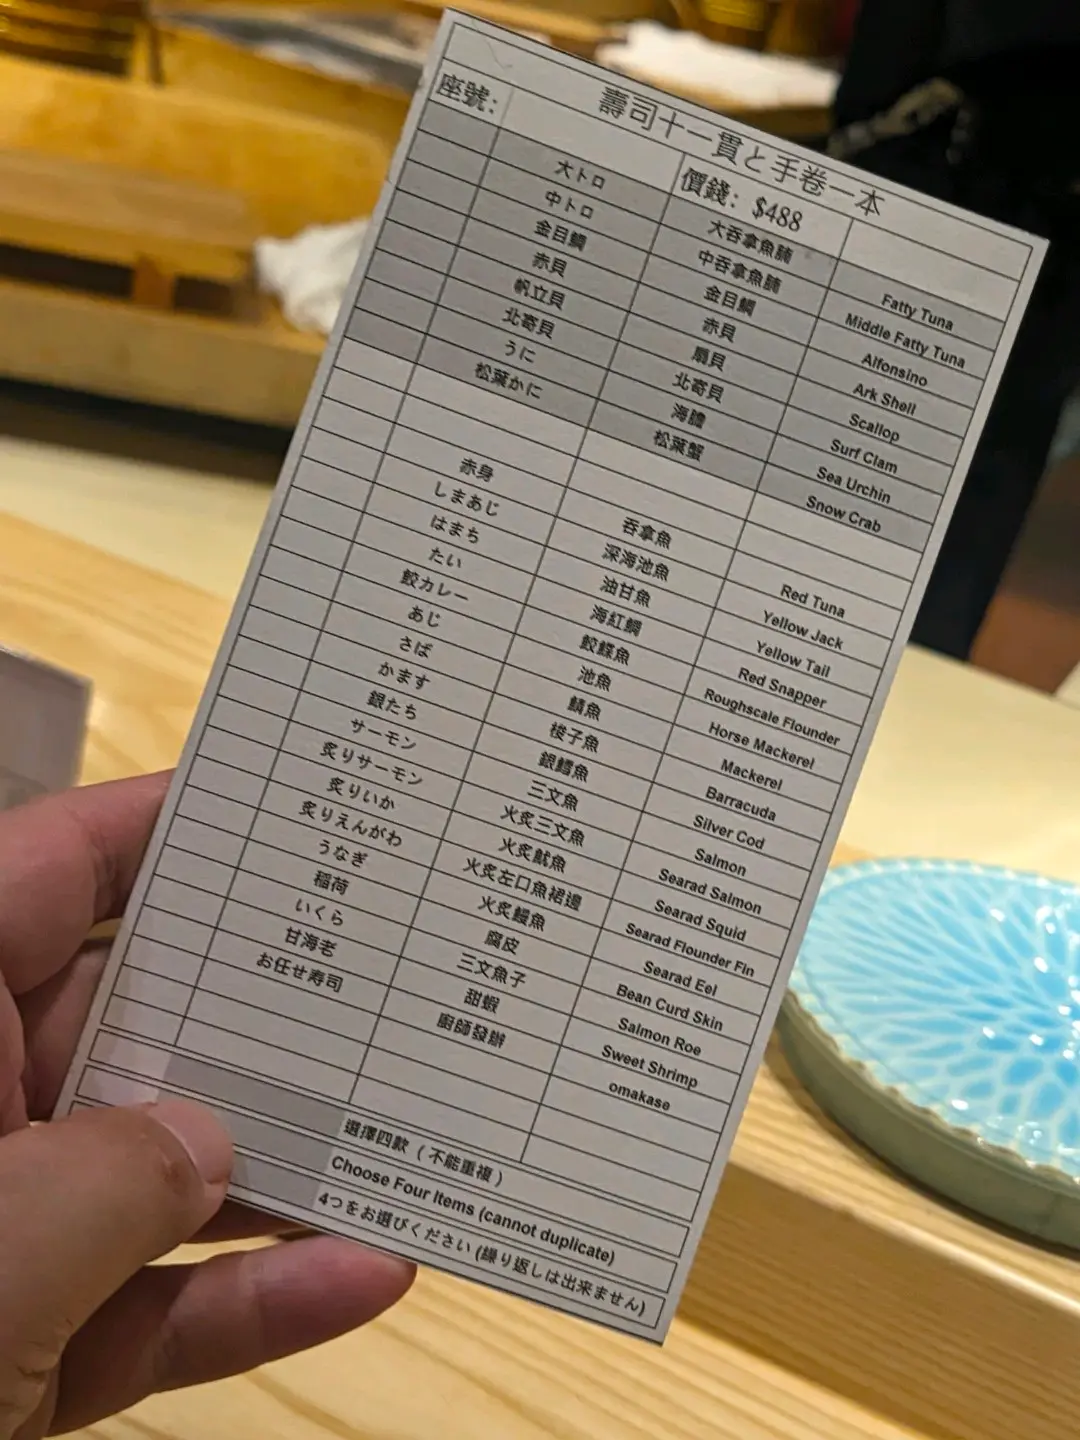 壽司十一貫と手卷一本
座號: 價錢: $488
大トロ 大吞拿魚腩 Fatty Tuna
中トロ 中吞拿魚腩 Middle Fatty Tuna
金目鯛 金目鯛 Alfonsino
赤貝 赤貝 Ark Shell
帆立貝 扇貝 Scallop
北寄貝 北寄貝 Surf Clam
うに 海膽 Sea Urchin
松葉かに 松葉蟹 Snow Crab
赤身 吞拿魚 Red Tuna
しまあじ 深海池魚 Yellow Jack
はまち 油甘魚 Yellow Tail
たい 海紅鯛 Red Snapper
鮫カレー 鮫鰈魚 Roughscale Flounder
あじ 池魚 Horse Mackerel
さば 鯖魚 Mackerel
かます 梭子魚 Barracuda
銀たち 銀鱈魚 Silver Cod
サーモン 三文魚 Salmon
炙りサーモン 火炙三文魚 Searad Salmon
炙りいか 火炙魷魚 Searad Squid
炙りえんがわ 火炙左口魚裙邊 Searad Flounder Fin
うなぎ 火炙鰻魚 Searad Eel
稲荷 腐皮 Bean Curd Skin
いくら 三文魚子 Salmon Roe
甘海老 甜蝦 Sweet Shrimp
お任せ寿司 廚師發辦 omakase
選擇四款 ( 不能重複 )
Choose Four Items (cannot duplicate)
4つをお選びください (繰り返しは出来ません)